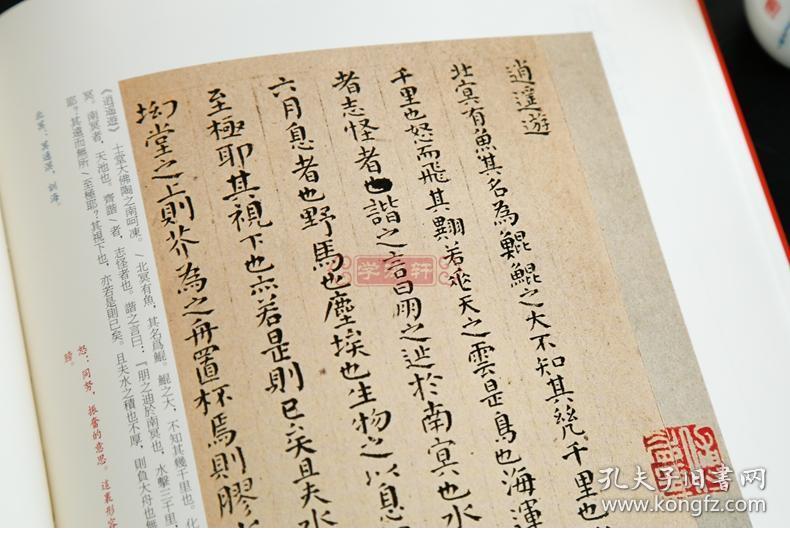 逍遥遊
北冥有魚其名為鯤鯤之大不知其幾千里也
千里也怒而飛其翼若垂天之雲是鳥也海運
者志怪者也諧之言曰鵬之迆於南冥也水
六月息者也野馬也塵埃也生物之以息
至極耶其視下也亦若是則已矣且夫水
坳堂之上則芥為之舟置杯焉則膠
《逍遥遊》 十堂大佛陶之南呵凍。 北冥有魚，其名爲鯤。鯤之大，不知其幾千里也。化
冥。南冥者，天池也。齊諧者，志怪者也。諧之言曰：『朋之迪於南冥也，水擊三千里，
耶？其遠而無所至極耶？其視下也，亦若是則已矣。且夫水之積也不厚，則負大舟也無
怒：同努，振奮的意思。這裏形容
學余軒
孔夫子旧书网
www.kongfz.com